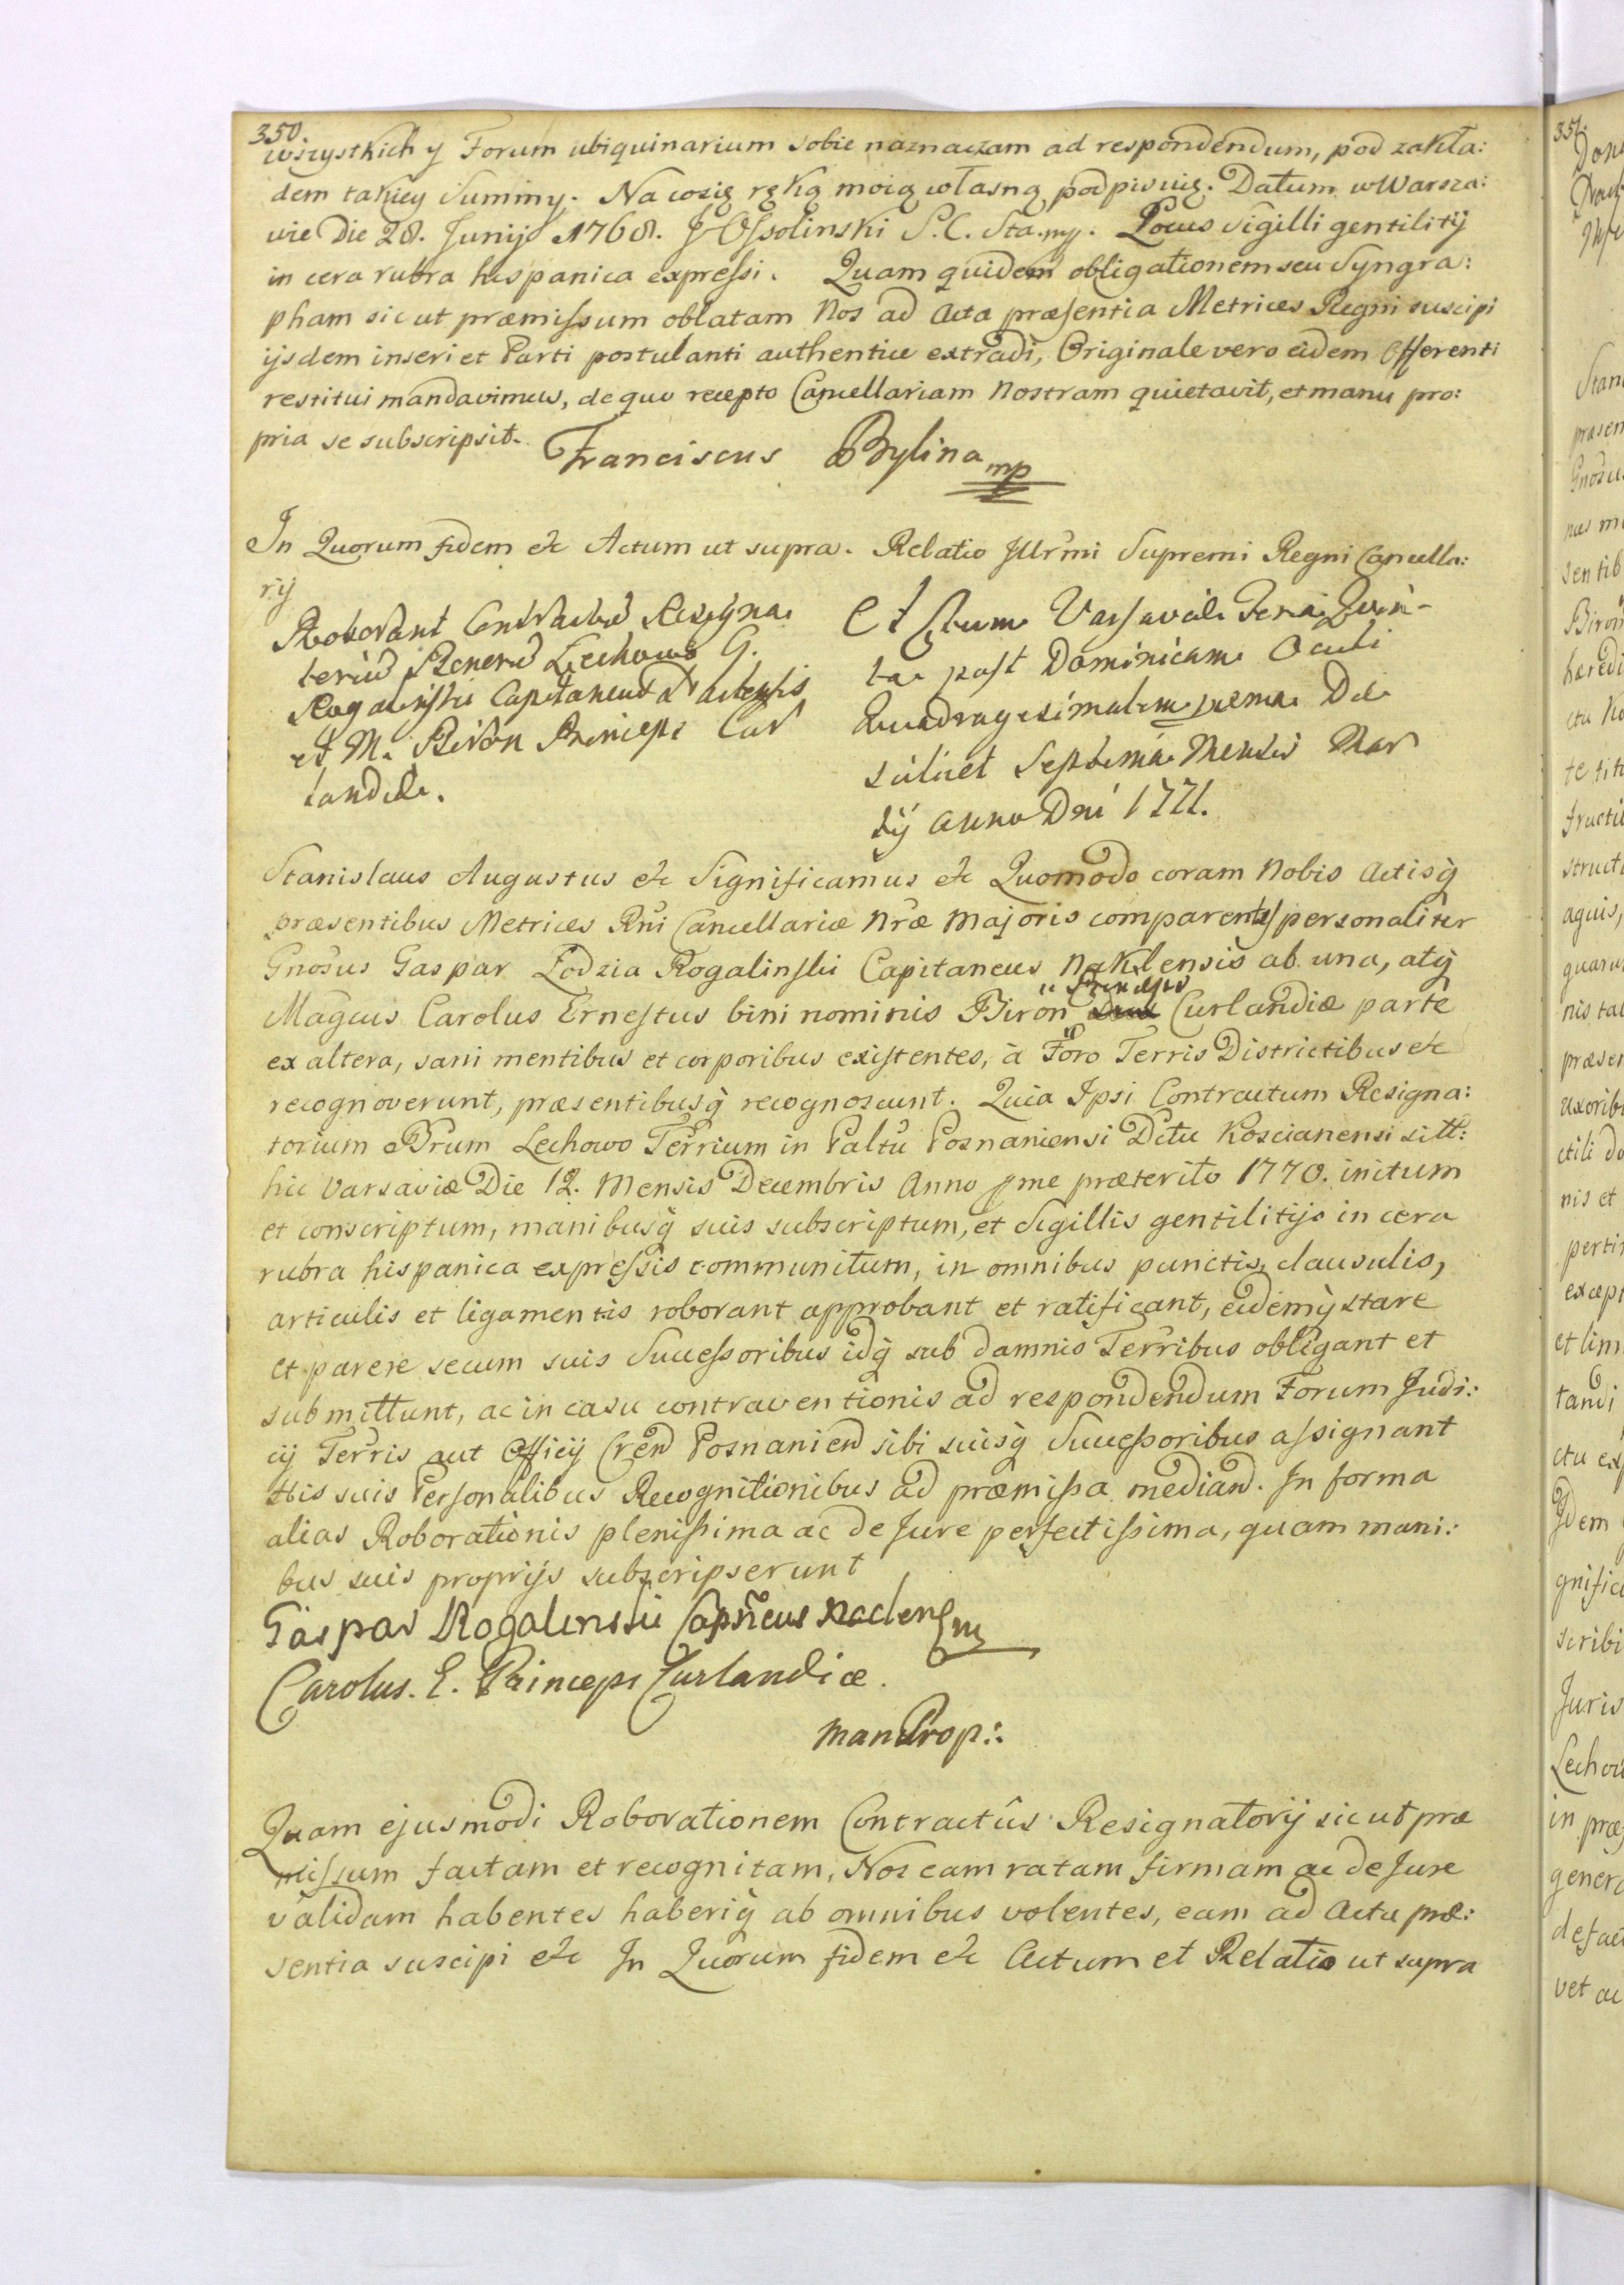 350.
wszystkich y Forum ubiquinarium sobie naznaczam ad respondendum, pod zakła:
dem takiey Summy. Na co się ręką moią własną podpisuię. Datum w Warsza:
wie Die 28. Junij 1768. J Ossolinski S. C. Sta. mp. Locus Sigilli gentilitij
in cera rubra hispanica expressi. Quam quidem obligationem seu Syngra:
pham sic ut præmissum oblatam Nos ad Acta præsentia Metrices Regni suscipi
ijsdem inseri et Parti postulanti authentice extradi, Originale vero eidem Offerenti
restitui mandavimus, de quo recepto Cancellariam Nostram quietavit, et manu pro:
pria se subscripsit. Franciscus Bylina mp
In Quorum fidem etc Actum ut supra. Relatio Illrmi Supremi Regni Cancella:
rij
Roborant Contractus Resigna
torius Bonorum Lechowo G.
Rogalinski Capitaneus
et M. Biron Princeps Cur
landiæ.
Actum Varsaviæ Feria Quin-
ta post Dominicam Oculi
Quadragesimalem proxima Die
scilicet Septima Mensis Mar
tij Anno Dni 1771.
Stanislaus Augustus etc Significamus etc Quomodo coram Nobis Actisq̃
præsentibus Metrices Rñi Cancellariæ Nræ Majoris comparentes personaliter
Gnosus Gaspar Łodzia Rogalinski Capitaneus Naklensis ab una, atq̃
Magcus Carolus Ernestus bini nominis Biron Princeps Curlandiæ parte
ex altera, sani mentibus et corporibus existentes, à Foro Terris Districtibus etc
recognoverunt, præsentibusq̃ recognoscunt. Quia Ipsi Contractum Resigna:
torium Brum Lechowo Terrium in Paltu Posnaniensi Dctu Koscianensi sitt:
hic Varsaviæ Die 12. Mensis Decembris Anno pme præterito 1770. initum
et conscriptum, manibusq̃ suis subscriptum, et Sigillis gentilitijs in cera
rubra hispanica expressis communitum, in omnibus punctis, clausulis,
articulis et ligamentis roborant approbant et ratificant, eidemq̃ stare
et parere secum suis Successoribus idq̃ sub damnis Terribus obligant et
submittunt, ac in casu contraventionis ad respondendum Forum Judi:
cij Terris aut Officij Cren Posnanien sibi suisq̃ Successoribus assignant
His suis Personalibus Recognitionibus ad præmissa median. In forma
alias Roborationis plenissima ac de Jure perfectissima, quam mani:
bus suis proprijs subscripserunt
Gaspar Rogalinski Capñeus Naclen mp
Carolus. E. Princeps Curlandiæ.
man Prop:.
Quam ejusmodi Roborationem Contractûs Resignatorij sic ut præ
missum factam et recognitam, Nos eam ratam firmam ac de Jure
validam habentes haberiq̃ ab omnibus volentes, eam ad Acta præ:
sentia suscipi etc In Quorum fidem etc Actum et Relatio ut supra